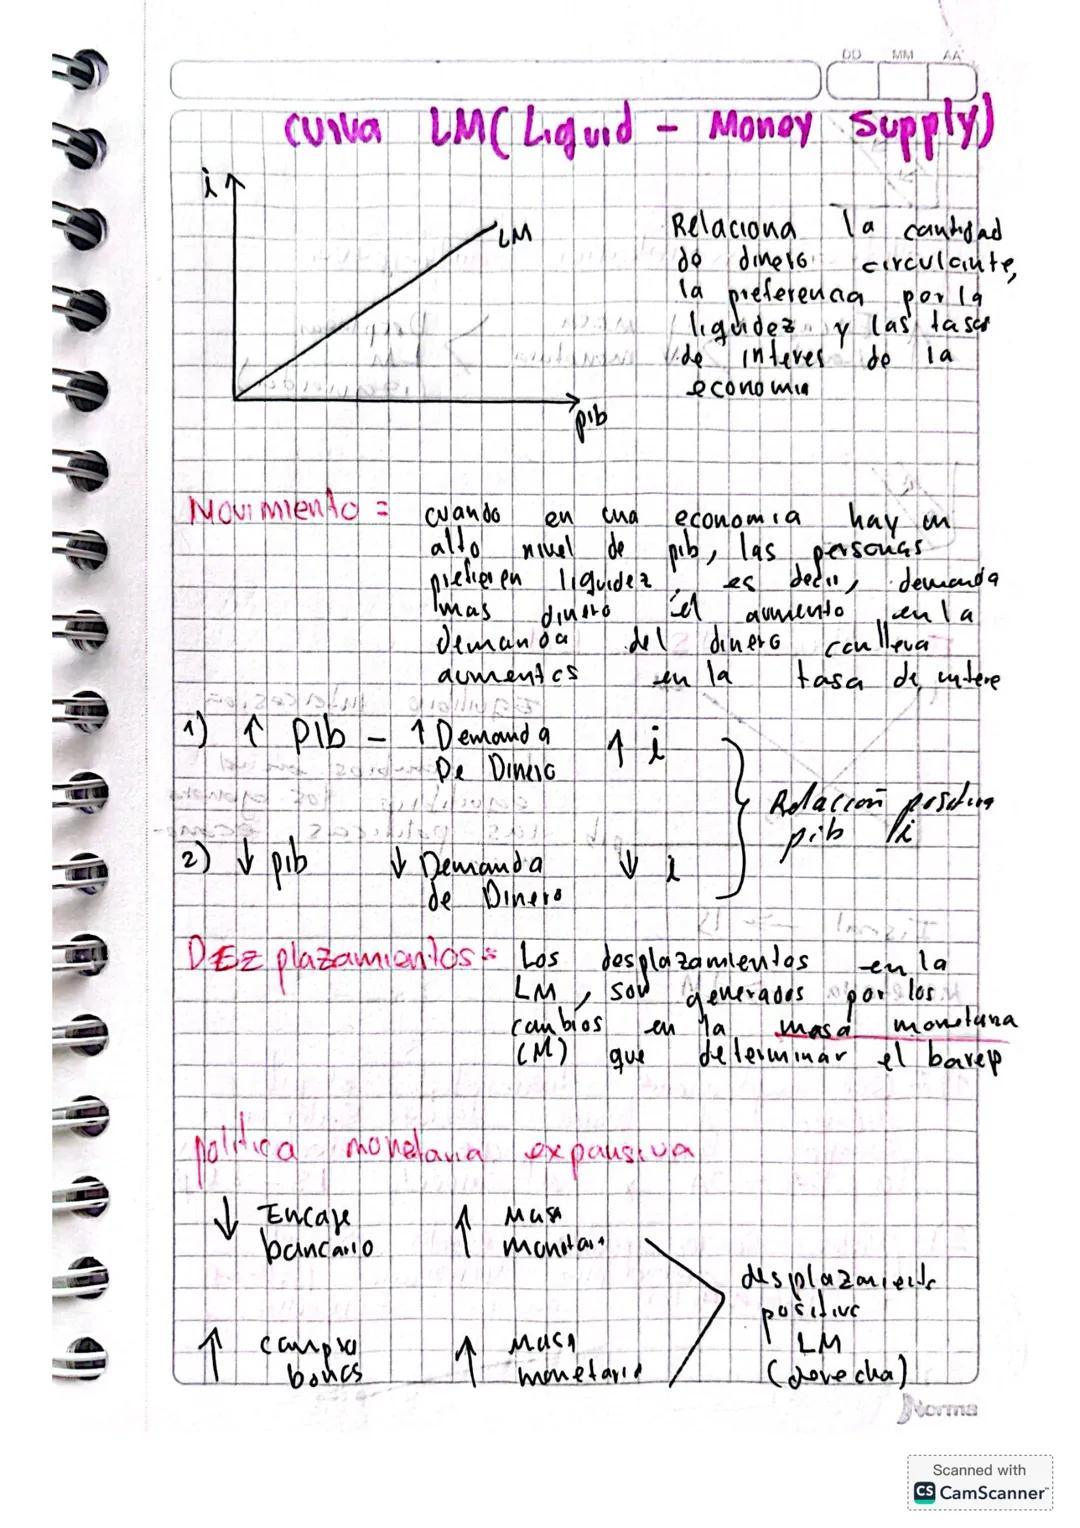 DD MM AA
Curva LM (Liquid - Money Supply)
i
LM
pib
Relaciona la cantidad
de dinero circulante,
la preferencia por la
liquidez y las tasas
de interes de la
economia
Movimiento = cuando en una economia hay un
alto nivel de pib, las personas
prefieren liquidez, es decir, demanda
mas dinero el aumento en la
demanda del dinero conlleva
aumentos en la tasa de intere
1) ↑ PIb - ↑ Demanda ↑ i
De Dinero
Relación positiva
pib i
2) ↓ pib ↓ Demanda ↓ i
de Dinero
DEZplazamientos = Los desplazamientos en la
LM, son generados por los
cambios en la masa monetaria
(M) que determinar el banrep
politica monetaria expansiva
↓ Encaje ↑ Masa
bancario monetari
desplazamiento
positivo
LM
(derecha)
↑ compra ↑ Masa
bonos monetaria
Norma
Scanned with
CS CamScanner